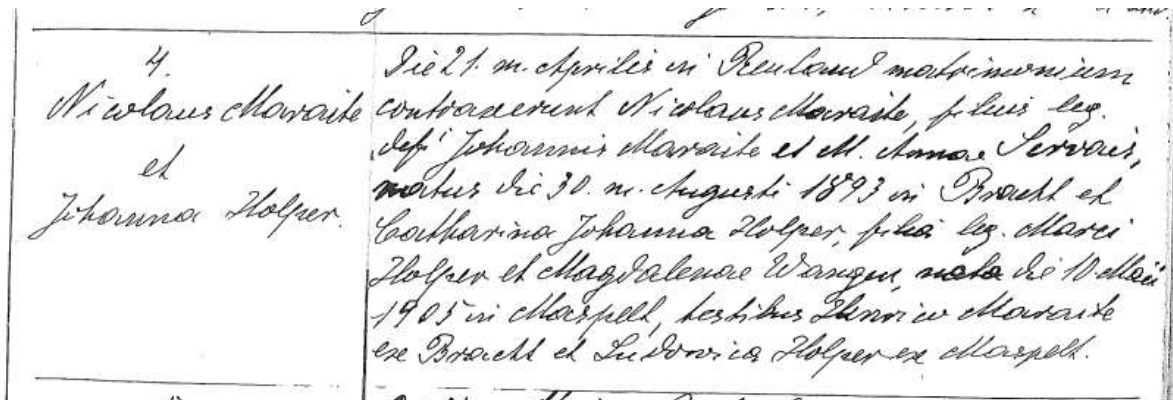 4.
Nicolaus Maraite
et
Johanna Holper.
Die 21. m. Aprilis in Reuland matrimonium
contraxerunt Nicolaus Maraite, filius leg.
def¹ Johannis Maraite et M. Annae Servais,
natus die 30. m. Augusti 1893 in Bracht et
Catharina Johanna Holper, filia leg. Marci
Holper et Magdalenae Wangen, nata die 10. Maii
1905 in Maspelt, testibus Henrico Maraite
ex Bracht et Ludovica Holper ex Maspelt.